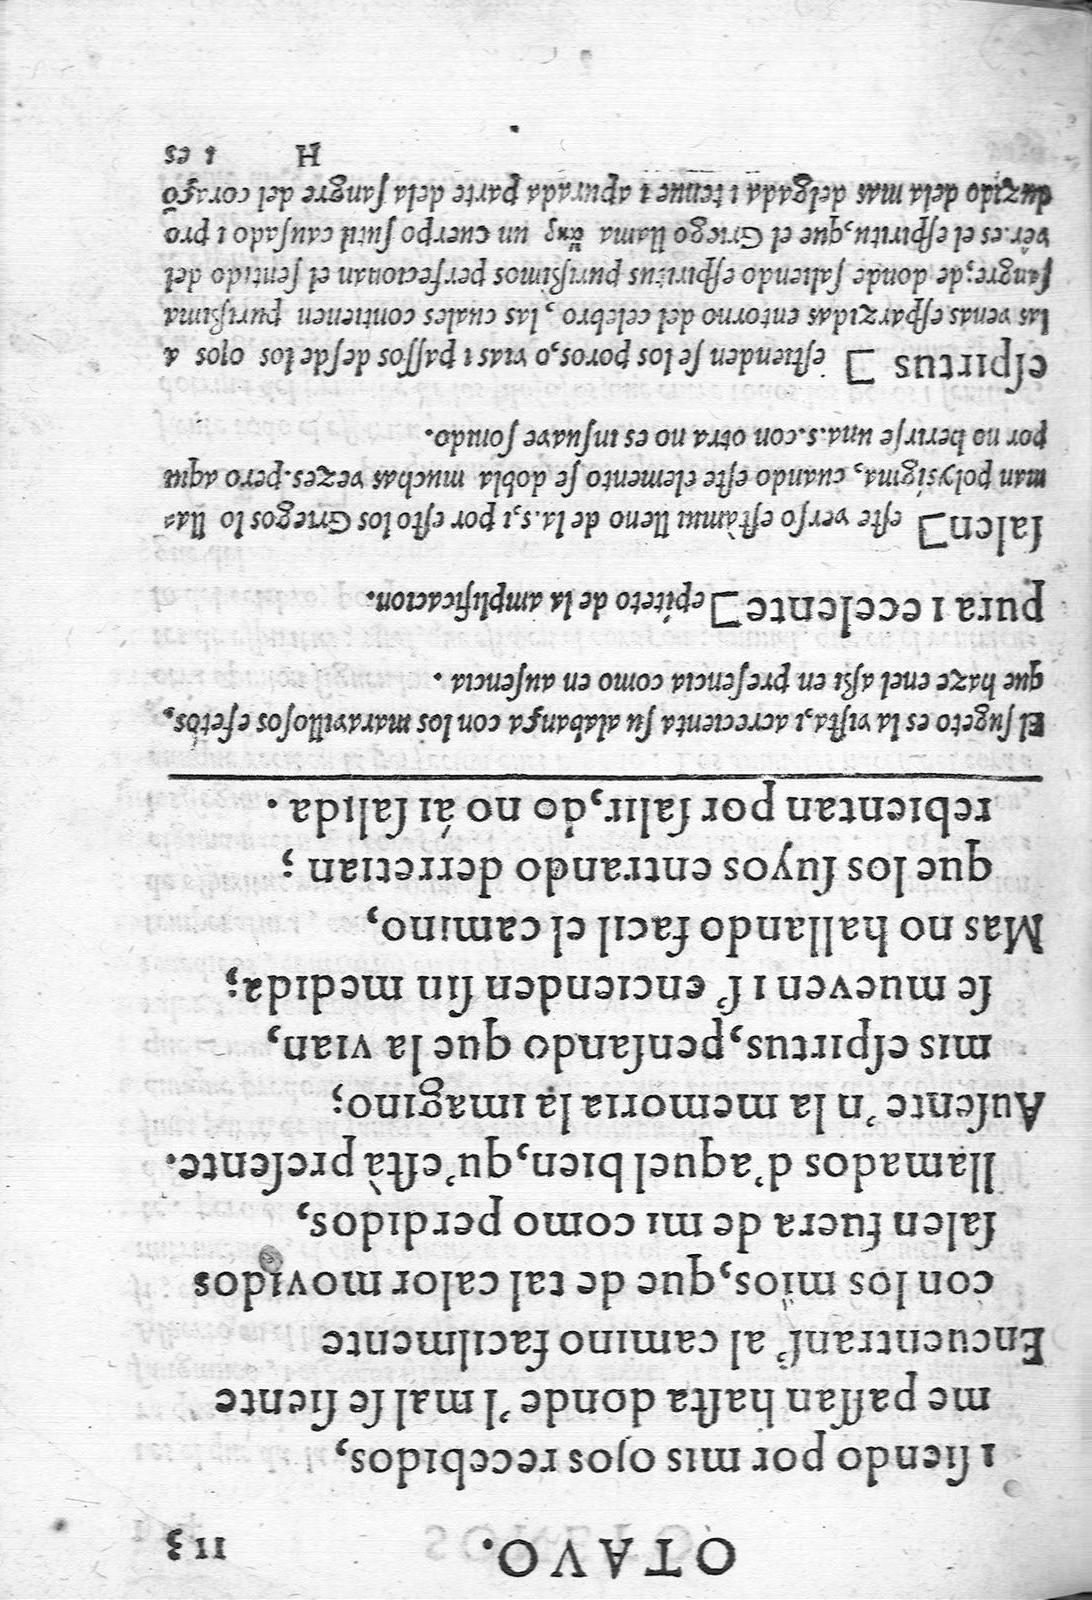 OTAVO. 113
ı ſiendo por mis ojos recebidos,
me paſſan haſta donde'l mal ſe ſiente
Encuentranſ' al camino facilmente
con los mios, que de tal calor movidos
ſalen fuera de mi como perdidos,
llamados d'aquel bien, qu'eſtà preſente.
Auſente'n la memoria la imagino;
mis eſpirtus, penſando que la vian,
ſe mueven ı ſ' encienden ſin medida;
Mas no hallando facil el camino,
que los ſuyos entrando derretian;
rebientan por ſalir, do no ái ſalida.
El ſugeto es la viſta, ı acrecienta ſu alabança con los maravilloſos efetos,
que haze enel aßi en preſencia como en auſencia.
pura ı ecelente] epíteto de la amplificacion.
ſalen] eſte verſo eſtà mui lleno de la .s, ı por eſto los Griegos lo lla-
man polysigma, cuando eſte elemento ſe dobla muchas vezes. pero aqui
por no herirſe una .s. con otra no es inſuave ſonido.
eſpirtus] eſtienden ſe los poros, o vias ı paſſos deſde los ojos a
las venas eſparzidas entorno del celebro, las cuales contienen purißima
ſangre; de donde ſaliendo eſpiritus purißimos perfecionan el ſentido del
ver. es el eſpiritu, que el Griego llama un cuerpo ſutil cauſado ı pro
duzido dela mas delgada ı tenue ı apurada parte dela ſangre del coraçõ
H ı es